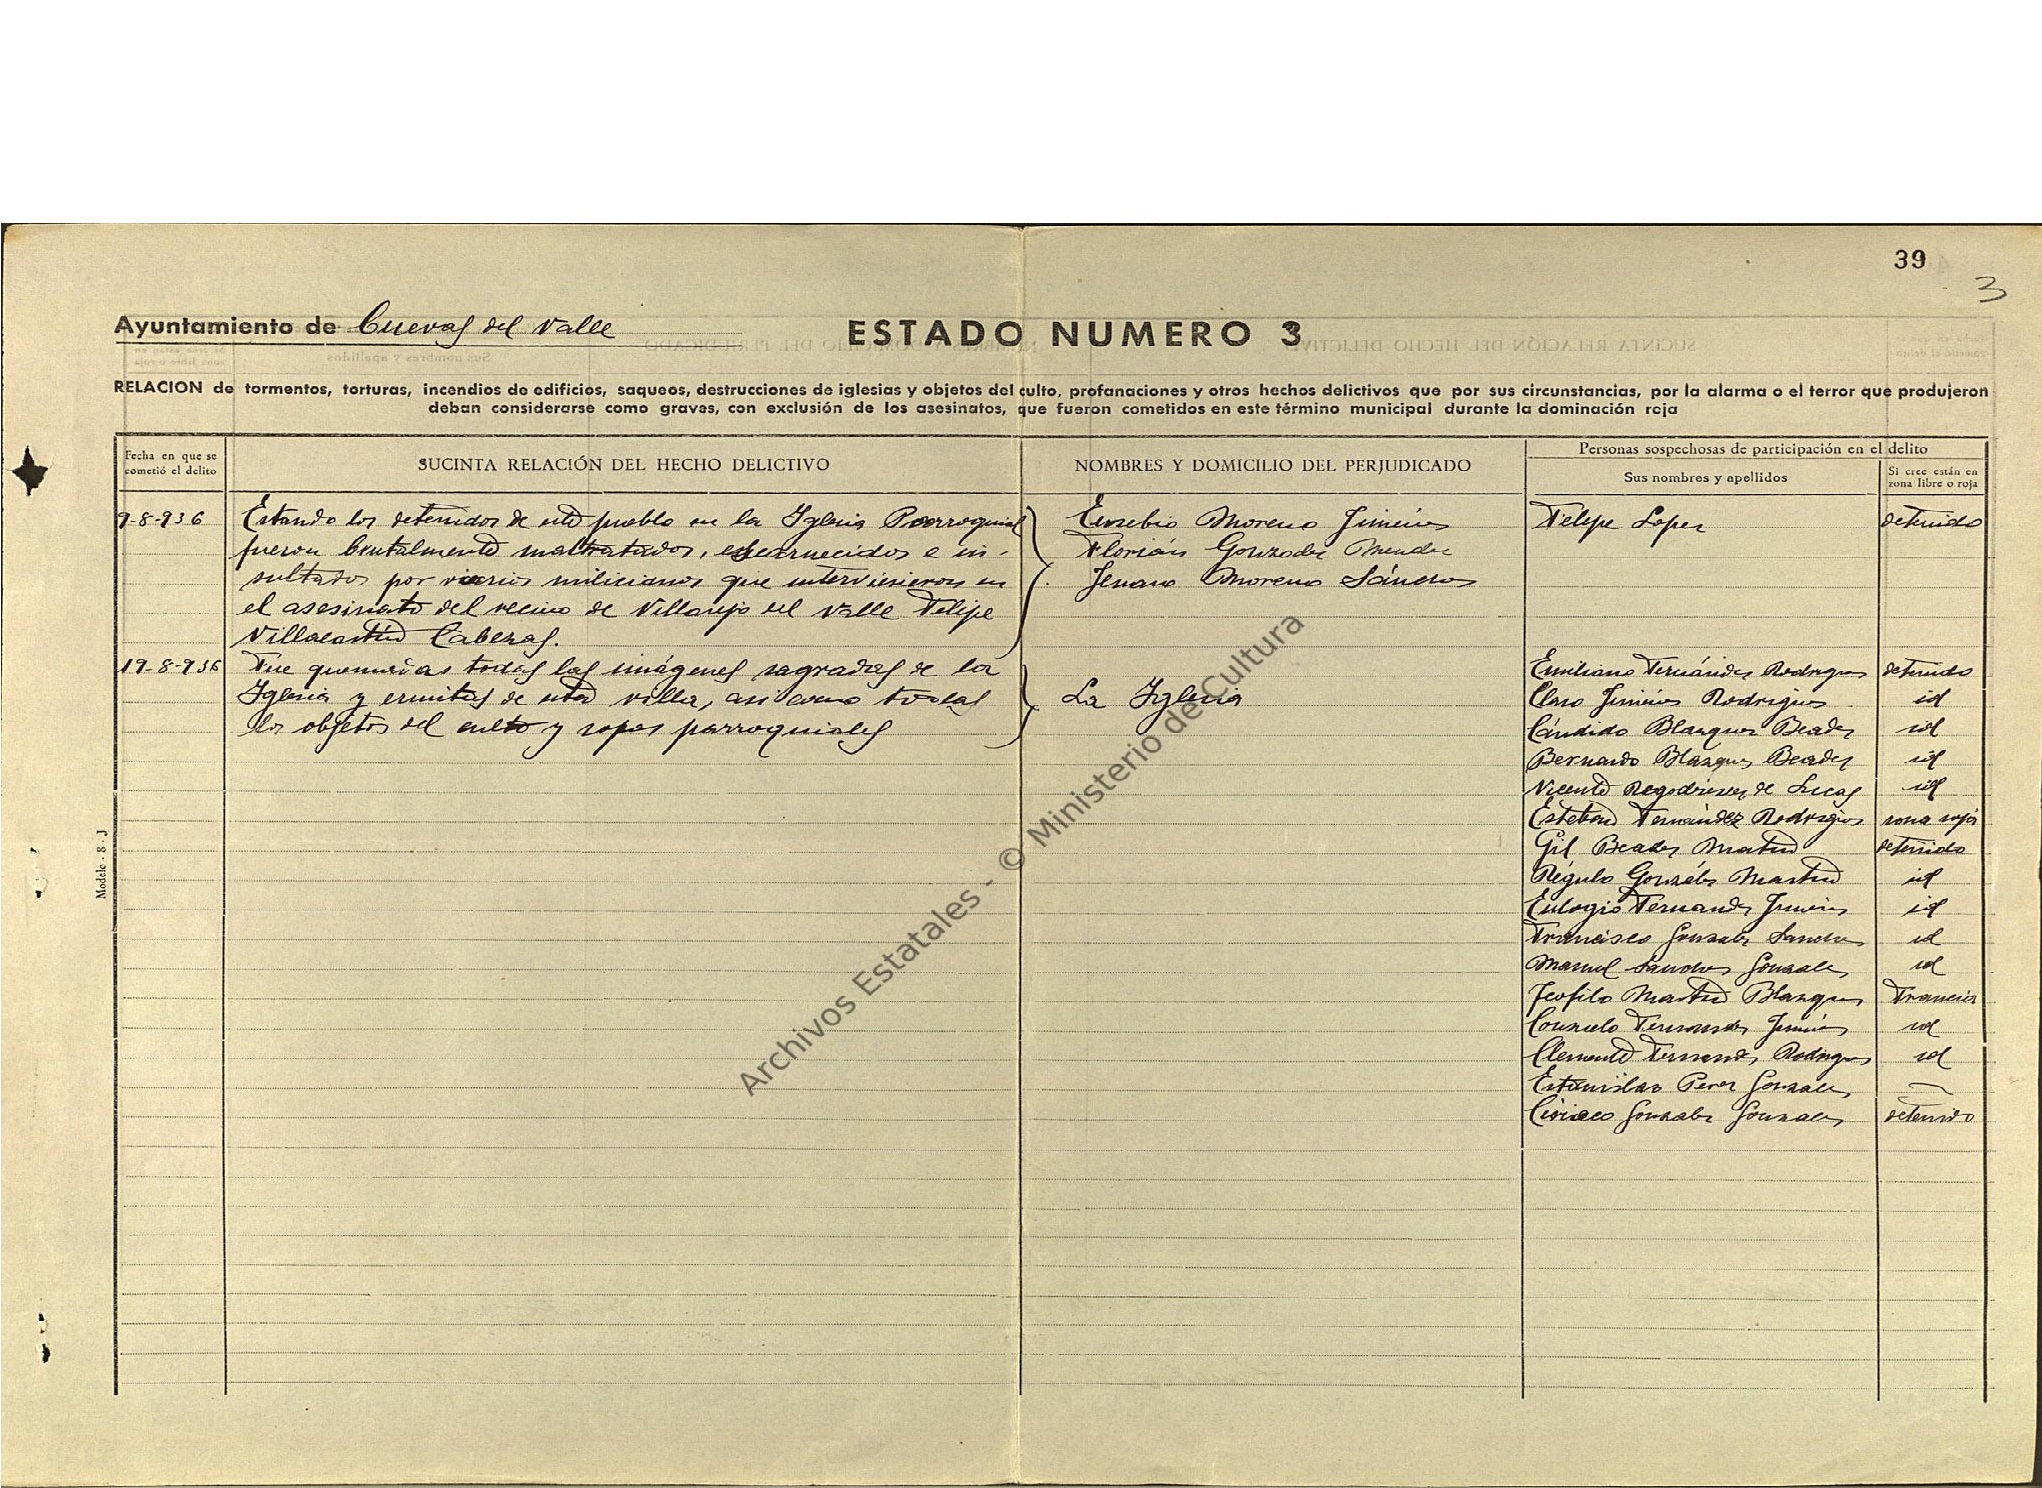 39
3
Ayuntamiento de Cuevas del Valle
ESTADO NUMERO 3
RELACION de tormentos, torturas, incendios de edificios, saqueos, destrucciones de iglesias y objetos del culto, profanaciones y otros hechos delictivos que por sus circunstancias, por la alarma o el terror que produjeron
deban considerarse como graves, con exclusión de los asesinatos, que fueron cometidos en este término municipal durante la dominación roja
Fecha en que se
cometió el delito
SUCINTA RELACIÓN DEL HECHO DELICTIVO
NOMBRES Y DOMICILIO DEL PERJUDICADO
Personas sospechosas de participación en el delito
Sus nombres y apellidos
Si cree están en
zona libre o roja
9-8-936 Estando los detenidos de este pueblo en la Iglesia Parroquial Eusebio Moreno Jiménez Felipe Lopez detenido
fueron brutalmente maltratados, escarnecidos e in- Florián González Mendez
sultados por varios milicianos que intervinieron en Jenaro Moreno Sánchez
el asesinato del vecino de Villarejo del Valle Felipe
Villacastín Cabezas.
19-8-936 Fue quemadas todas las imágenes sagradas de la Emiliano Fernández Rodriguez detenido
Iglesia y ermitas de esta villa, asi como todos La Iglesia Claro Jiménez Rodriguez id
los objetos del culto y ropas parroquiales Cándido Blazquez Beades id
Bernardo Blazquez Beades id
Vicente de Lucas id
Esteban Fernández Rodriguez zona roja
Gil Beades Martin detenido
Régulo González Martin id
Eulogio Fernandez Jimenez id
Francisco Gonzalez Sanchez id
Manuel Sanchez Gonzalez id
Teofilo Martin Blazquez Francia
Consuelo Fernandez Jiménez id
Clemente Fernandez Rodriguez id
Estanislao Perez Gonzalez —
Ciriaco Gonzalez Gonzalez detenido
Modelo - 8 . J
Archivos Estatales - © Ministerio de Cultura